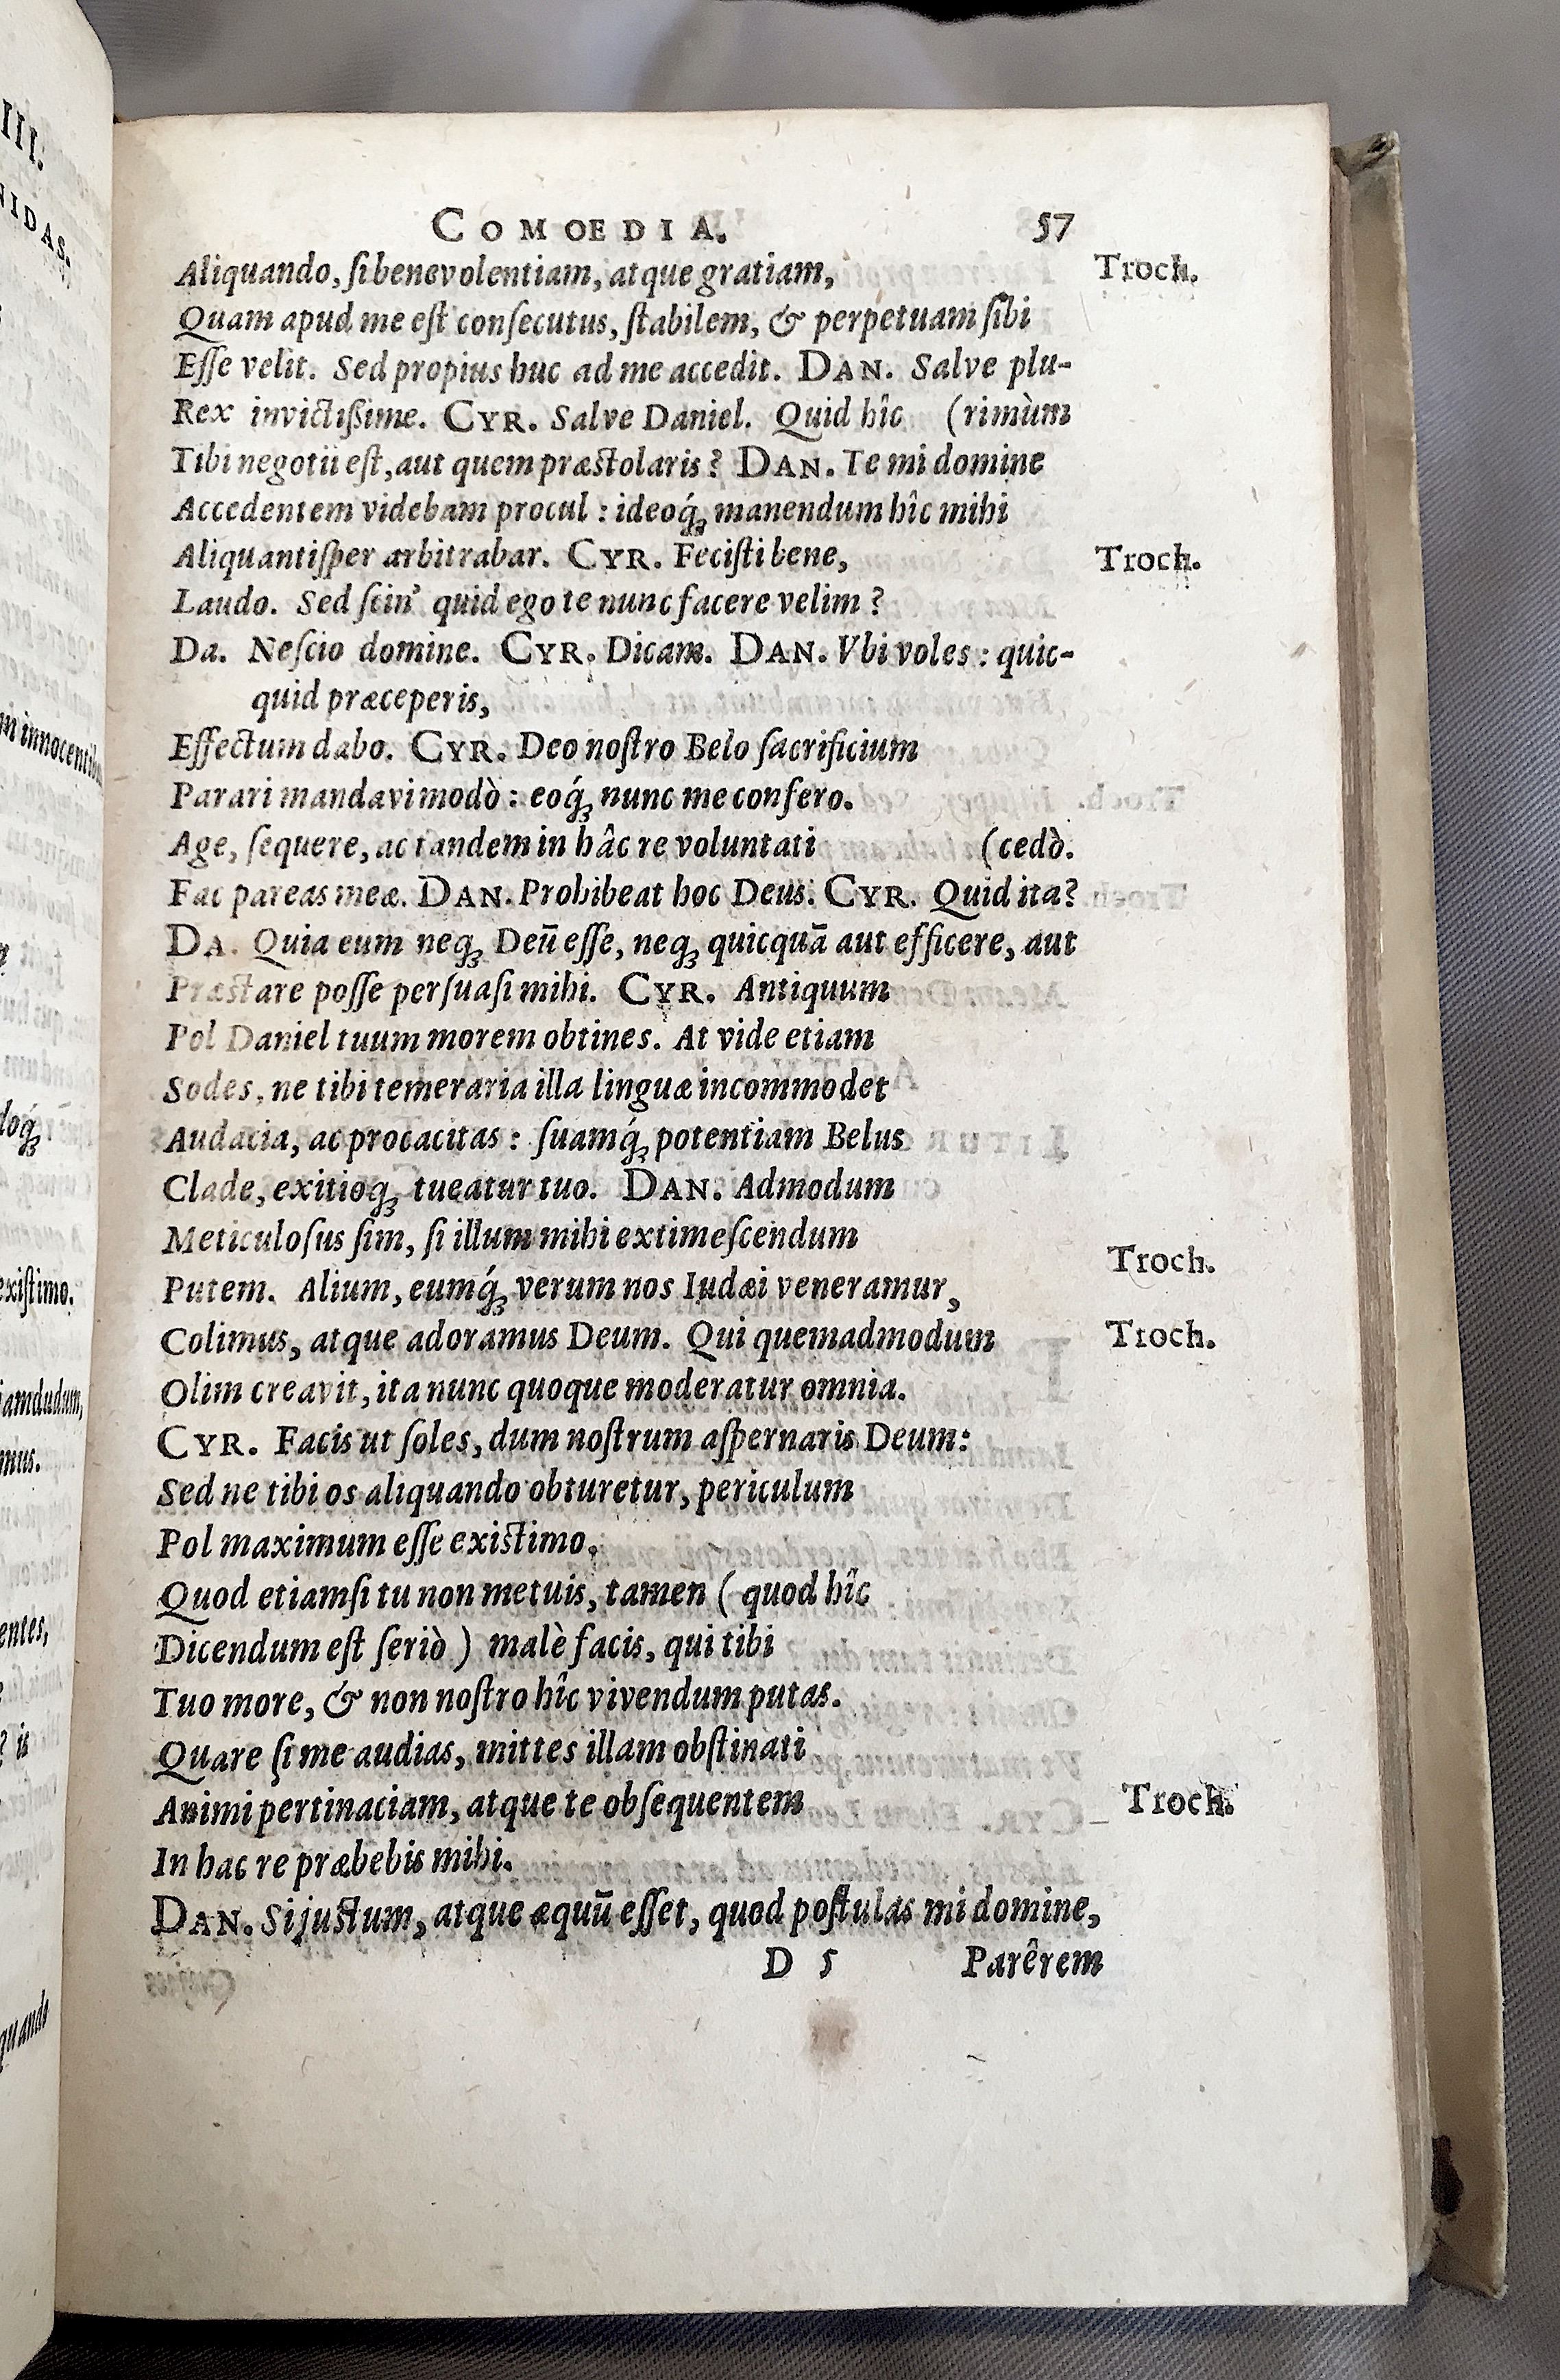 COMOEDIA. 57
Aliquando, ſi benevolentiam, atque gratiam, Troch.
Quam apud me eſt conſecutus, ſtabilem, & perpetuam ſibi
Eſſe velit. Sed propius huc ad me accedit. DAN. Salve plu-
Rex invictißime. CYR. Salve Daniel. Quid hîc (rimùm
Tibi negotii eſt, aut quem præſtolaris? DAN. Te mi domine
Accedentem videbam procul : ideoq́ꝫ manendum hîc mihi
Aliquantiſper arbitrabar. CYR. Feciſti bene, Troch.
Laudo. Sed ſcin' quid ego te nunc facere velim ?
Da. Neſcio domine. CYR. Dicam. DAN. Vbi voles : quic-
quid præceperis,
Effectum dabo. CYR. Deo noſtro Belo ſacrificium
Parari mandavi modò : eoq́ꝫ nunc me confero.
Age, ſequere, ac tandem in hâc re voluntati (cedò.
Fac pareas meæ. DAN. Prohibeat hoc Deus. CYR. Quid ita?
DA. Quia eum neqꝫ Deū eſſe, neqꝫ quicquā aut efficere, aut
Præſtare poſſe perſuaſi mihi. CYR. Antiquum
Pol Daniel tuum morem obtines. At vide etiam
Sodes, ne tibi temeraria illa linguæ incommodet
Audacia, ac procacitas : ſuamq́ꝫ potentiam Belus
Clade, exitioqꝫ tueatur tuo. DAN. Admodum
Meticuloſus ſim, ſi illum mihi extimeſcendum
Putem. Alium, eumq́ꝫ verum nos Iudæi veneramur, Troch.
Colimus, atque adoramus Deum. Qui quemadmodum Troch.
Olim creavit, ita nunc quoque moderatur omnia.
CYR. Facis ut ſoles, dum noſtrum aſpernaris Deum:
Sed ne tibi os aliquando obturetur, periculum
Pol maximum eſſe existimo.
Quod etiamſi tu non metuis, tamen ( quod hîc
Dicendum eſt ſeriò ) malè facis, qui tibi
Tuo more, & non noſtro hîc vivendum putas.
Quare ſi me audias, mittes illam obſtinati
Animi pertinaciam, atque te obſequentem Troch.
In hac re præbebis mihi.
DAN. Si juſtum, atque æquū eſſet, quod poſtulas mi domine,
D 5 Parêrem